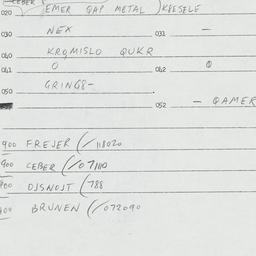 CEBER
020 EMER QAP METAL KBESELE
030 NEX 031 –
040 KRQMISLO QUKR
041 0 042 0
050 GRING8-
052 – QAMER
900 FREJER (/118020
900 CEBER (/07110
900 DJSNOJT (788
900 BRUNEN (/072090